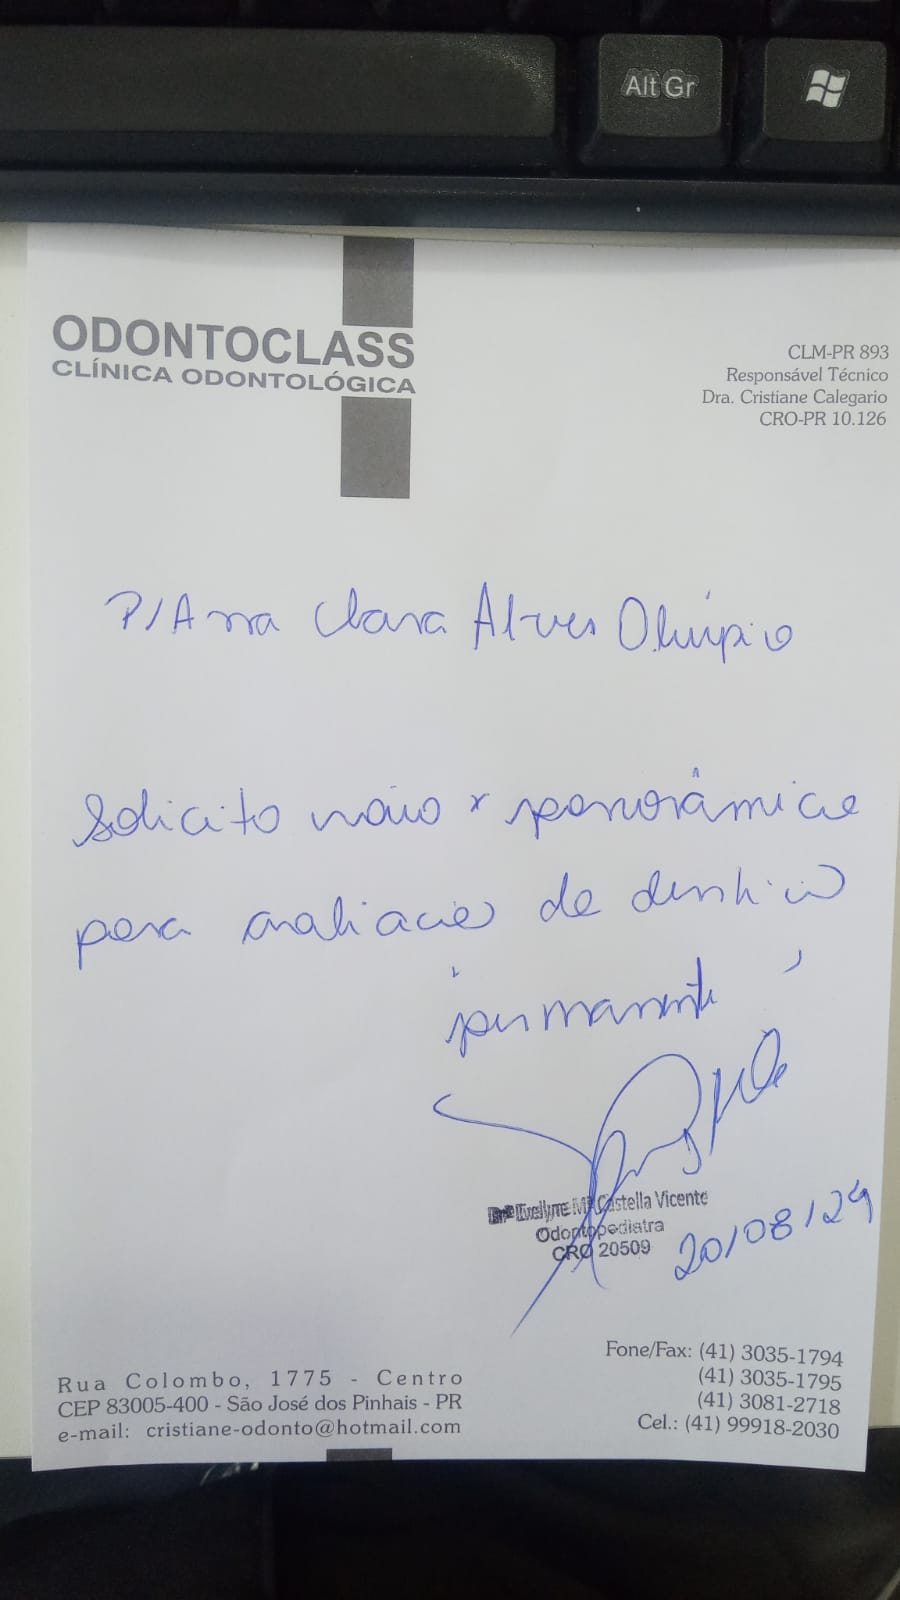 Alt Gr
ODONTOCLASS
CLÍNICA ODONTOLÓGICA
CLM-PR 893
Responsável Técnico
Dra. Cristiane Calegario
CRO-PR 10.126
P/ Anna Clara Alves Olímpio
Solicito raio x panorâmica
para avaliacão de dentição
permanente
Drª Evelyne Mª Castella Vicente
Odontopediatra
CRO 20509
20/08/24
Rua Colombo, 1775 - Centro
CEP 83005-400 - São José dos Pinhais - PR
e-mail: cristiane-odonto@hotmail.com
Fone/Fax: (41) 3035-1794
(41) 3035-1795
(41) 3081-2718
Cel.: (41) 99918-2030